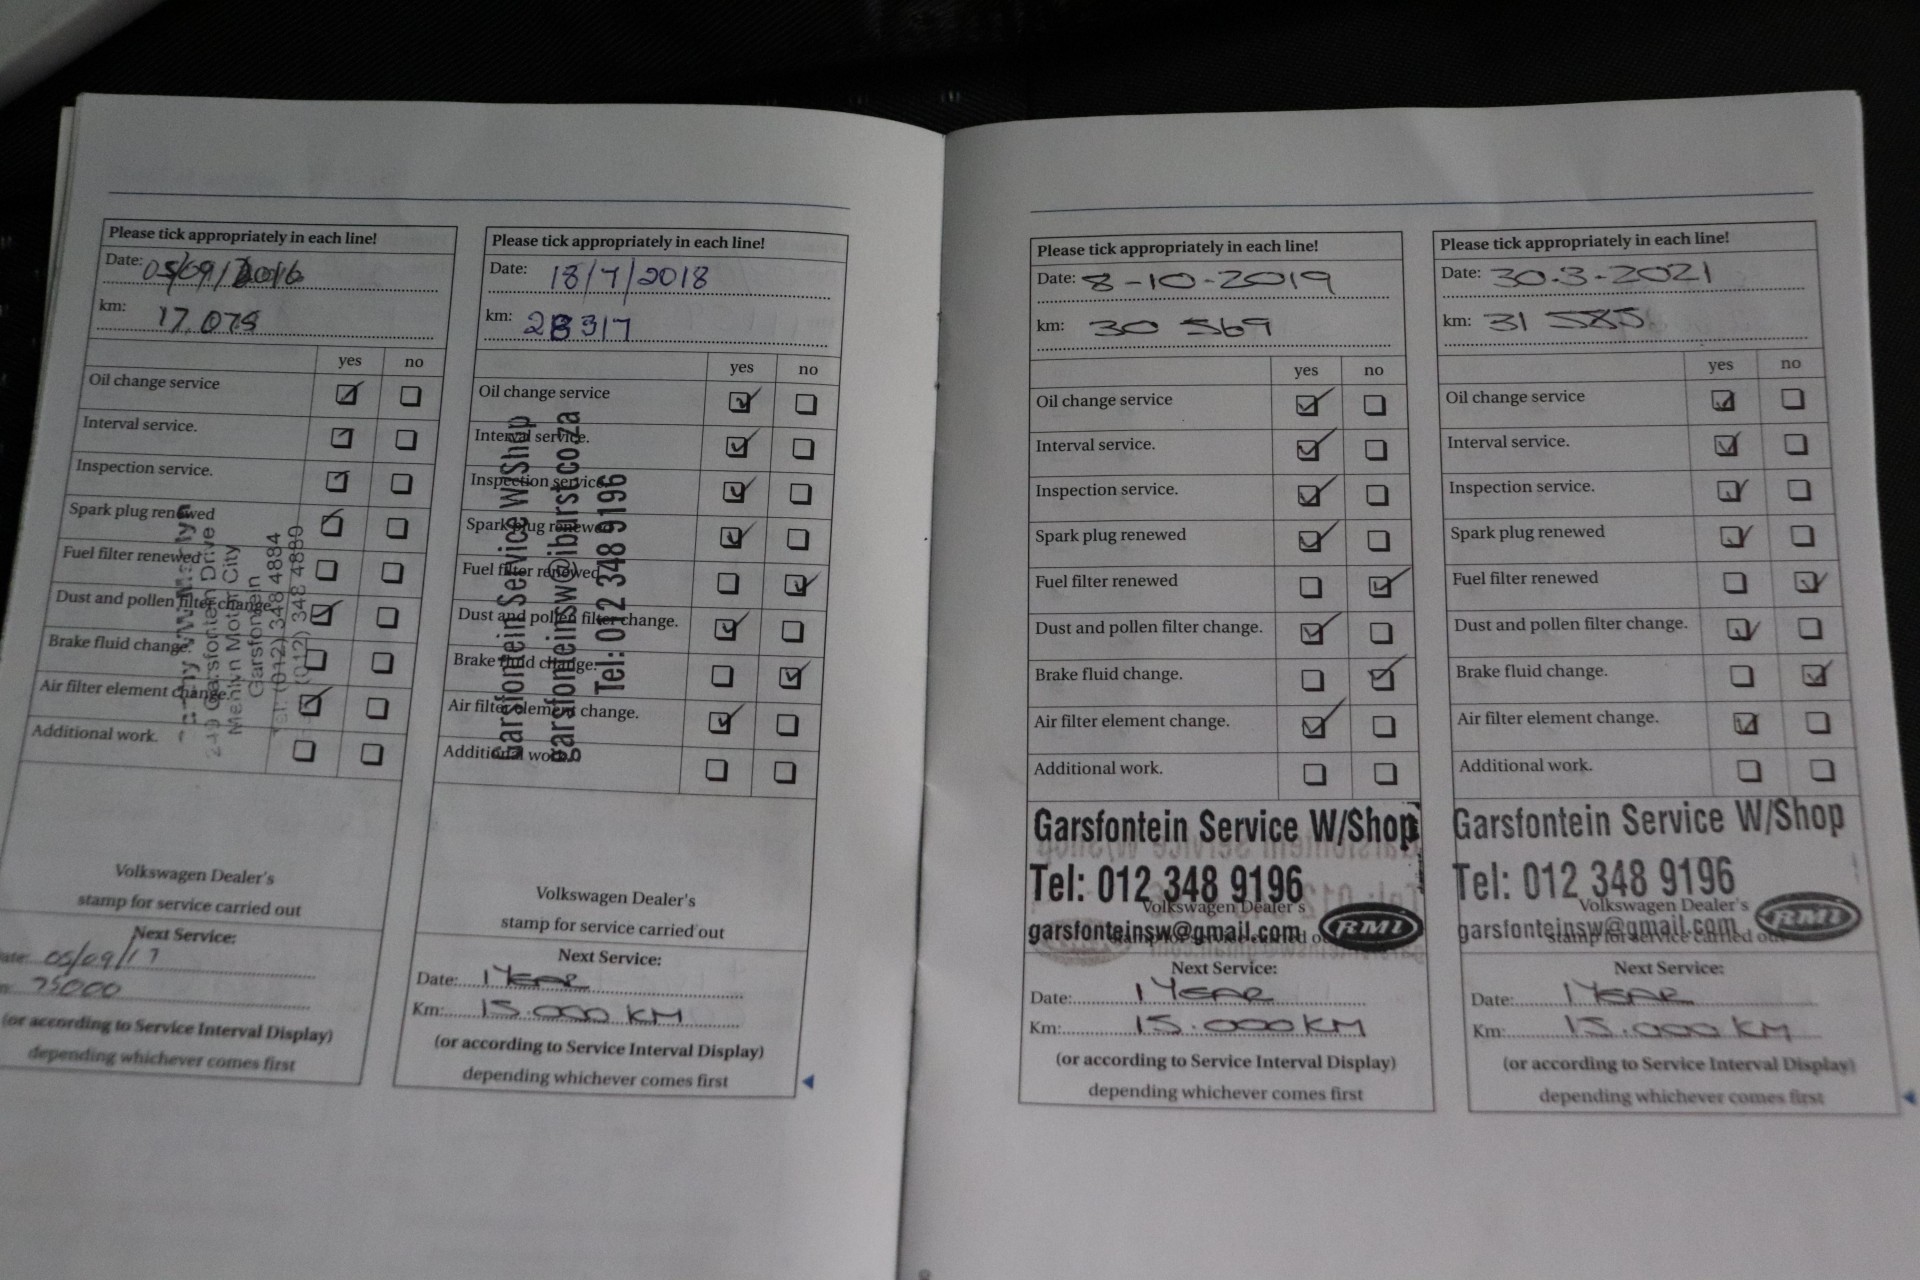 Please tick appropriately in each line!
Date: 05/09/2016
km: 17 075
yes no
Oil change service
Interval service.
Inspection service.
Spark plug renewed
Fuel filter renewed
Dust and pollen filter change.
Brake fluid change.
Air filter element change.
Additional work.
Garsfontein Drive
Menlyn Motor City
Garsfontein
Tel: (012) 348 4884
(012) 348 4889
Volkswagen Dealer's
stamp for service carried out
Next Service:
05/09/17
(or according to Service Interval Display)
depending whichever comes first
Please tick appropriately in each line!
Date: 18/7/2018
km: 28317
yes no
Oil change service
Interval service.
Inspection service.
Spark plug renewed
Fuel filter renewed
Dust and pollen filter change.
Brake fluid change.
Air filter element change.
Additional work.
Garsfontein Service W/Shop
garsfonteinsw@iburst.co.za
Tel: 012 348 9196
Volkswagen Dealer's
stamp for service carried out
Next Service:
Date: 1 YEAR
Km: 15.000 KM
(or according to Service Interval Display)
depending whichever comes first
Please tick appropriately in each line!
Date: 8-10-2019
km: 30 569
yes no
Oil change service
Interval service.
Inspection service.
Spark plug renewed
Fuel filter renewed
Dust and pollen filter change.
Brake fluid change.
Air filter element change.
Additional work.
Garsfontein Service W/Shop
Tel: 012 348 9196
Volkswagen Dealer's
garsfonteinsw@gmail.com RMI
stamp for service carried out
Next Service:
Date: 1 YEAR
Km: 15.000 KM
(or according to Service Interval Display)
depending whichever comes first
Please tick appropriately in each line!
Date: 30.3-2021
km: 31 585
yes no
Oil change service
Interval service.
Inspection service.
Spark plug renewed
Fuel filter renewed
Dust and pollen filter change.
Brake fluid change.
Air filter element change.
Additional work.
Garsfontein Service W/Shop
Tel: 012 348 9196
Volkswagen Dealer's
garsfonteinsw@gmail.com RMI
stamp for service carried out
Next Service:
Date: 1 YEAR
Km: 15.000 KM
(or according to Service Interval Display)
depending whichever comes first